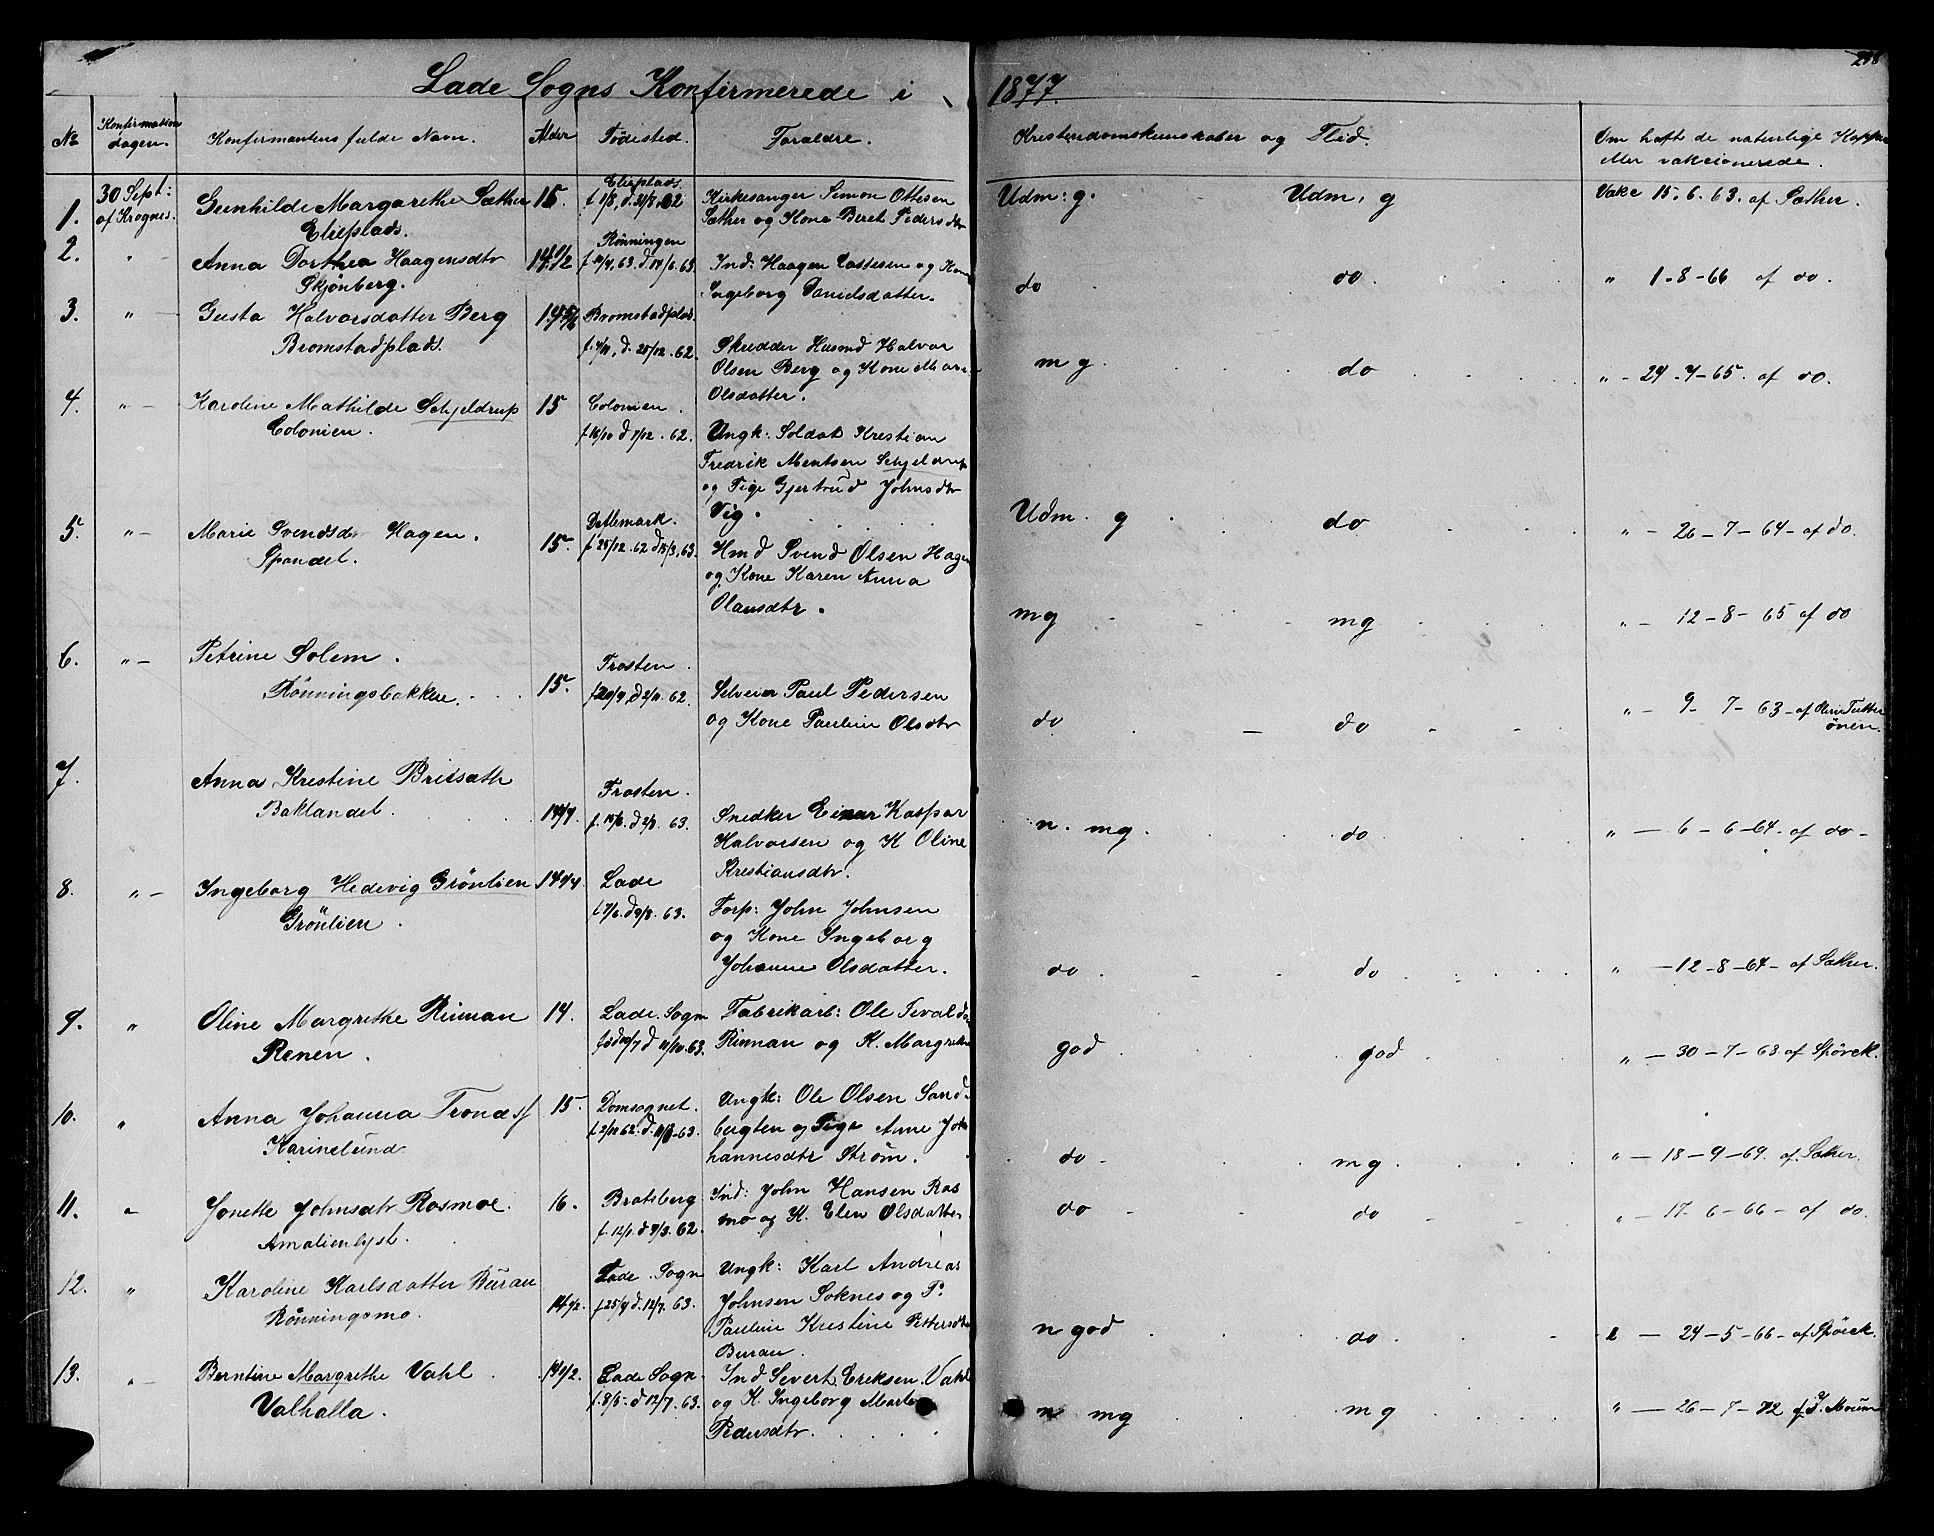 Lade Sogns Konfirmerede i 1877.
No Konfirmationsdagen. Konfirmantens fulde Navn. Alder Födested. Foraldre. Kristendomskunskaber og Flid. Om haft de naturlige Kopper
eller vakcionerede.
1. 30 Sept: af Krognes. Gunhilde Margarethe Sæther 15 Elieplads. Kirkesanger Simon Ottesen Udm: g. Udm. g Vakc 15. 6. 63. af Sæther.
Elieplads. f 1/8, d. 31/8. 62 Sæther og Kone Beret Pedersdtr
2. " Anna Dorthea Haagensdtr 14 1/2 Rönningen Ind: Haagen og Kone do do " 1-8-66 af do.
Skjönberg. 63. Ingeborg Danielsdatter.
3. " Gusta Halvorsdatter Berg Bromstadplads. Skredder Husmd Halvor m g. do " - 24-7-65. af do.
Bromstadplads. 62. Olsen Berg og Kone
Olsdatter.
4. " Karoline Mathilde Schjeldrup 15 Colonien. Ungk: Soldat Krestian Udm. g do " - 26-7-64- af do.
Colonien. f 16/10 d 7/12. 62. Fredrik Mentsen Schjeldrup
og Pige Gjertrud Johnsdtr
Vig.
5. " Marie Svendsdr Hagen. 15. Hmd Svend Olsen Hagen mg mg " - 12-8-65 af do
f 25/12. 62 d 15/3. 63. og Kone Karen Anna
Olausdtr.
6. " Petrine Solem. 15. Frosten. Paul Pedersen do do " - 9-7-63- af
Rönningsbakken. f 20/9, d 2/11. 62. og Kone Pauline Olsdtr
7. Anna Krestine 14 1/4 Frosten. Snedker Einar Kaspar n. mg. do " - 6-6-64- af do-
Baklandet. 63. Halvorsen og K Oline
Krestiansdtr.
8. " Ingeborg Hedevig Grönlien 14 1/4 Lade Torp: John Johnsen do do " - 12-8-64- af Sæther.
Grönlien. f 7/6. d 9/8. 63. og Kone Ingeborg
Johanne Olsdatter.
9. " Oline Margrethe Rinnan 14. Lade. Sogn Fabrikarb: Ole god god " - 30-7-63 af Spörck.
Renen. 11/10. 63. Rinnan og K. Margrethe
10. " Anna Johanna 15. Domsognet. Ungk: Ole Olsen Sand- do mg " - 18-9-69. af Sæther.
Karinelund. 63. bugten og Pige Anne Jo-
hannesdtr Ström.
11. " Jonette Johnsdtr Rosmoe. 16. Bratsberg Ind: John Hansen Ros do do " - 17-6-66- af do.
Amalienlyst. f. 12/1. d 9/3. 62. mo og K. Elen Olsdatter
12. " Karoline Karlsdatter Burau 14 1/2. Lade Sogn Ungk: Karl Andreas n god do " - 24-5-66- af Spörck.
Rönningsmo. f 25/4 d. 12/7. 63. Johnsen Soknes og P.
Pauline Krestine Pettersdtr
Burau.
13. " Berntine Margrethe Vahl 14 1/2. Lade Sogn. Ind Sivert Eriksen Vahl n mg mg " - 26-7-72 af J. Moum
Valhalla. f. 8/5- d 12/7. 63. og K. Ingeborg Marta
Pedersdtr.